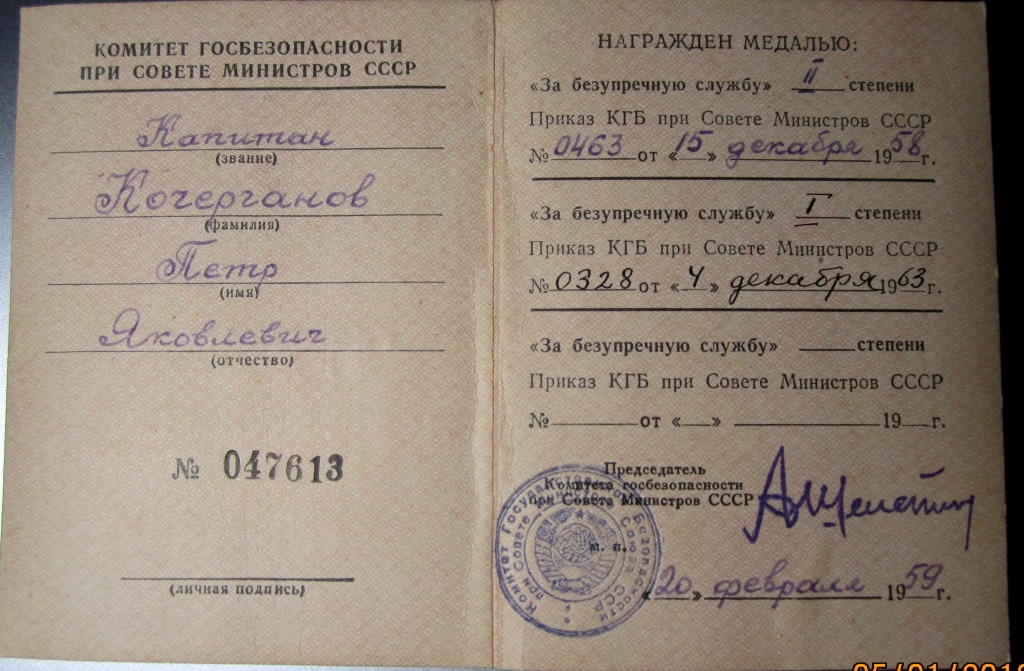 КОМИТЕТ ГОСБЕЗОПАСНОСТИ
ПРИ СОВЕТЕ МИНИСТРОВ СССР
Капитан
(звание)
Кочерганов
(фамилия)
Петр
(имя)
Яковлевич
(отчество)
№ 047613
(личная подпись)
НАГРАЖДЕН МЕДАЛЬЮ:
«За безупречную службу» II степени
Приказ КГБ при Совете Министров СССР
№ 0463 от «15» декабря 1958 г.
«За безупречную службу» I степени
Приказ КГБ при Совете Министров СССР
№ 0328 от «4» декабря 1963 г.
«За безупречную службу» ____ степени
Приказ КГБ при Совете Министров СССР
№ ____ от «__» ____ 19__ г.
Председатель
Комитета госбезопасности
при Совете Министров СССР
А Шелепин
м. п.
Комитет Государственной Безопасности
при Совете Министров Союза ССР
«20» февраля 1959 г.